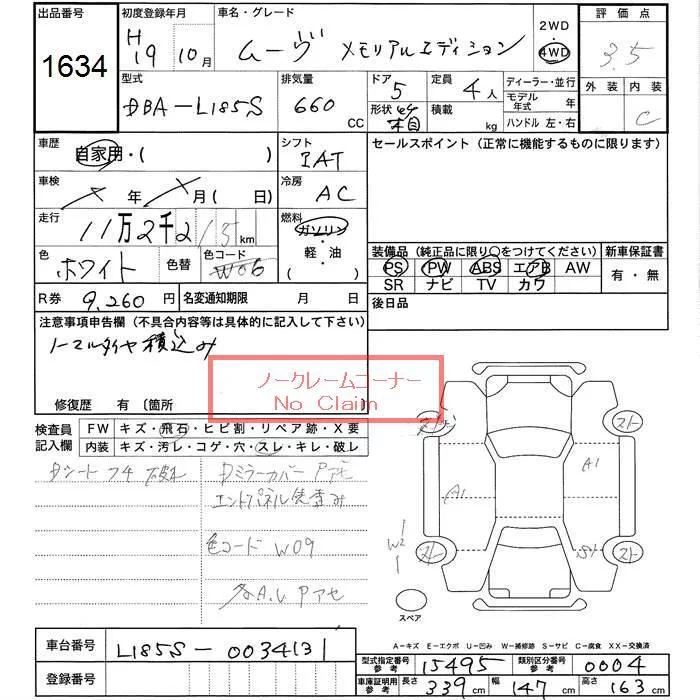 出品番号
1634
初度登録年月
H
19 10月
車名・グレード
ムーヴ メモリアルエディション
2WD
4WD
評価点
3.5
外装 内装
C
型式
DBA-L185S
排気量
660
CC
ドア
5
形状
定員
4人
積載
kg
ディーラー・並行
モデル年式 年
ハンドル 左・右
車歴
自家用・( )
シフト
IAT
セールスポイント (正常に機能するものに限ります)
車検
年 月( 日)
冷房
AC
走行
11万2千2
km
燃料
ガソリン
・
軽・油
( )
色
ホワイト
色替
色コード
W06
装備品 (純正品に限り○をつけてください)
PS PW ABS エアB AW
SR ナビ TV カワ
新車保証書
有・無
R券 9,260円
名変通知期限 月 日
後日品
注意事項申告欄 (不具合内容等は具体的に記入して下さい)
ノーマルタイヤ積込み
ノークレームコーナー
No Claim
修復歴 有 〔箇所
検査員
記入欄
FW キズ・飛石・ヒビ割・リペア跡・X要
内装 キズ・汚レ・コゲ・穴・スレ・キレ・破レ
Dシート
Dミラーカバー Pアセ
エンドパネル
色コード W09
A.U Pアセ
A1
A1
W2
S1
スペア
A-キズ E-エクボ U-凹み W-補修跡 S-サビ C-腐食 XX-交換済
車台番号
L185S-0034131
登録番号
型式指定番号
参考
15495
類別区分番号
参考
0004
車庫証明用
参考
長さ
339cm
幅
147cm
高さ
163cm